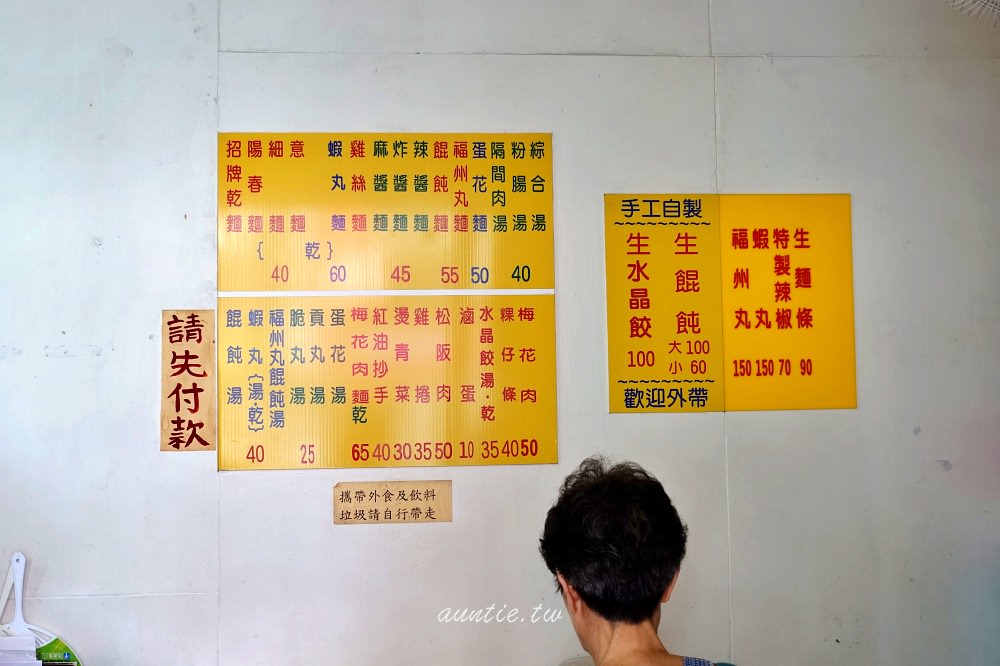 招牌乾麵
陽春麵
細麵
意麵
{ 乾 }
蝦丸麵
雞絲麵
麻醬麵
炸醬麵
辣醬麵
餛飩麵
福州丸麵
蛋花麵
隔間肉湯
粉腸湯
綜合湯
40 60 45 55 50 40
餛飩湯
蝦丸{湯·乾}
福州丸餛飩湯
脆丸湯
貢丸湯
蛋花湯
梅花肉麵乾
紅油抄手
燙青菜
雞捲
松阪肉
滷蛋
水晶餃湯·乾
粿仔條
梅花肉
40 25 65 40 30 35 50 10 35 40 50
請先付款
攜帶外食及飲料
垃圾請自行帶走
手工自製
生水晶餃
100
生餛飩
大100
小 60
歡迎外帶
福州丸
蝦丸
特製辣椒
生麵條
150 150 70 90
auntie.tw